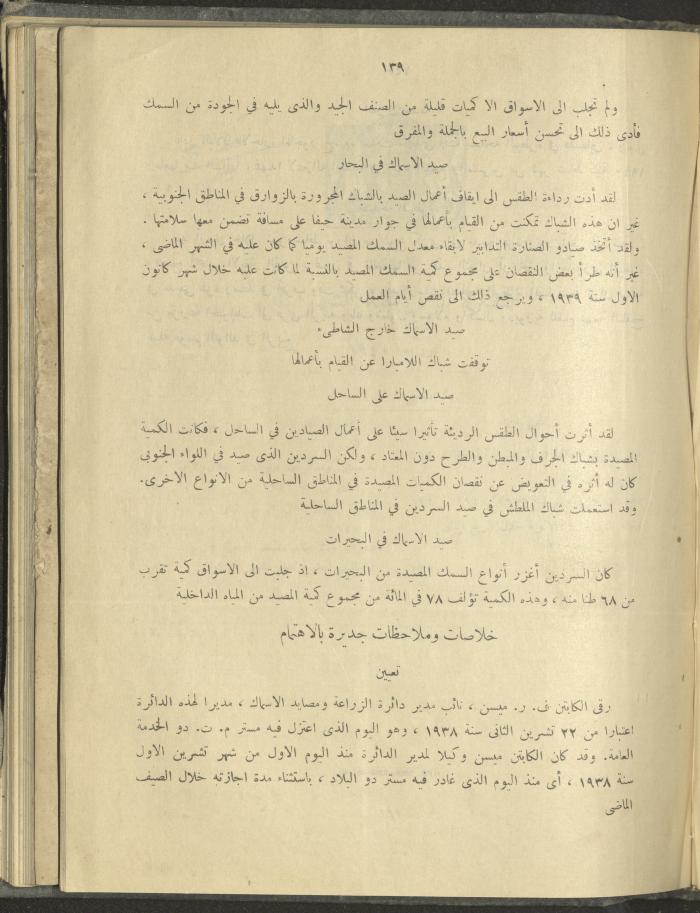 ١٣٩
ولم تجلب الى الاسواق الا كميات قليلة من الصنف الجيد والذى يليه في الجودة من السمك
فأدى ذلك الى تحسن أسعار البيع بالجملة والمفرق
صيد الاسماك في البحار
لقد أدت رداءة الطقس الى ايقاف أعمال الصيد بالشباك المجرورة بالزوارق في المناطق الجنوبية ،
غير ان هذه الشباك تمكنت من القيام بأعمالها في جوار مدينة حيفا على مسافة تضمن معها سلامتها .
ولقد أتخذ صيادو الصنارة التدابير لابقاء معدل السمك المصيد يوميا كما كان عليه في الشهر الماضى ،
غير أنه طرأ بعض النقصان على مجموع كمية السمك المصيد بالنسبة لما كانت عليه خلال شهر كانون
الاول سنة ١٩٣٩ ، ويرجع ذلك الى نقص أيام العمل
صيد الاسماك خارج الشاطىء
توقفت شباك اللامبارا عن القيام بأعمالها
صيد الاسماك على الساحل
لقد أثرت أحوال الطقس الرديئة تأثيرا سيئا على أعمال الصيادين في الساحل ، فكانت الكمية
المصيدة بشباك الجرف والمبطن والطرح دون المعتاد ، ولكن السردين الذى صيد في اللواء الجنوبى
كان له أثره في التعويض عن نقصان الكميات المصيدة في المناطق الساحلية من الانواع الاخرى.
وقد استعملت شباك الملطش في صيد السردين في المناطق الساحلية
صيد الاسماك في البحيرات
كان السردين أغزر أنواع السمك المصيدة من البحيرات ، اذ جلبت الى الاسواق كمية تقرب
من ٦٨ طنا منه ، وهذه الكمية تؤلف ٧٨ في المائة من مجموع كمية المصيد من المياه الداخلية
خلاصات وملاحظات جديرة بالاهتمام
تعيين
رقى الكابتن ف. ر. ميسن ، نائب مدير دائرة الزراعة ومصايد الاسماك ، مديرا لهذه الدائرة
اعتبارا من ٢٢ تشرين الثانى سنة ١٩٣٨ ، وهو اليوم الذى اعتزل فيه مستر م. ت. دو الخدمة
العامة. وقد كان الكابتن ميسن وكيلا لمدير الدائرة منذ اليوم الاول من شهر تشرين الاول
سنة ١٩٣٨ ، أى منذ اليوم الذى غادر فيه مستر دو البلاد ، باستثناء مدة اجازته خلال الصيف
الماضى